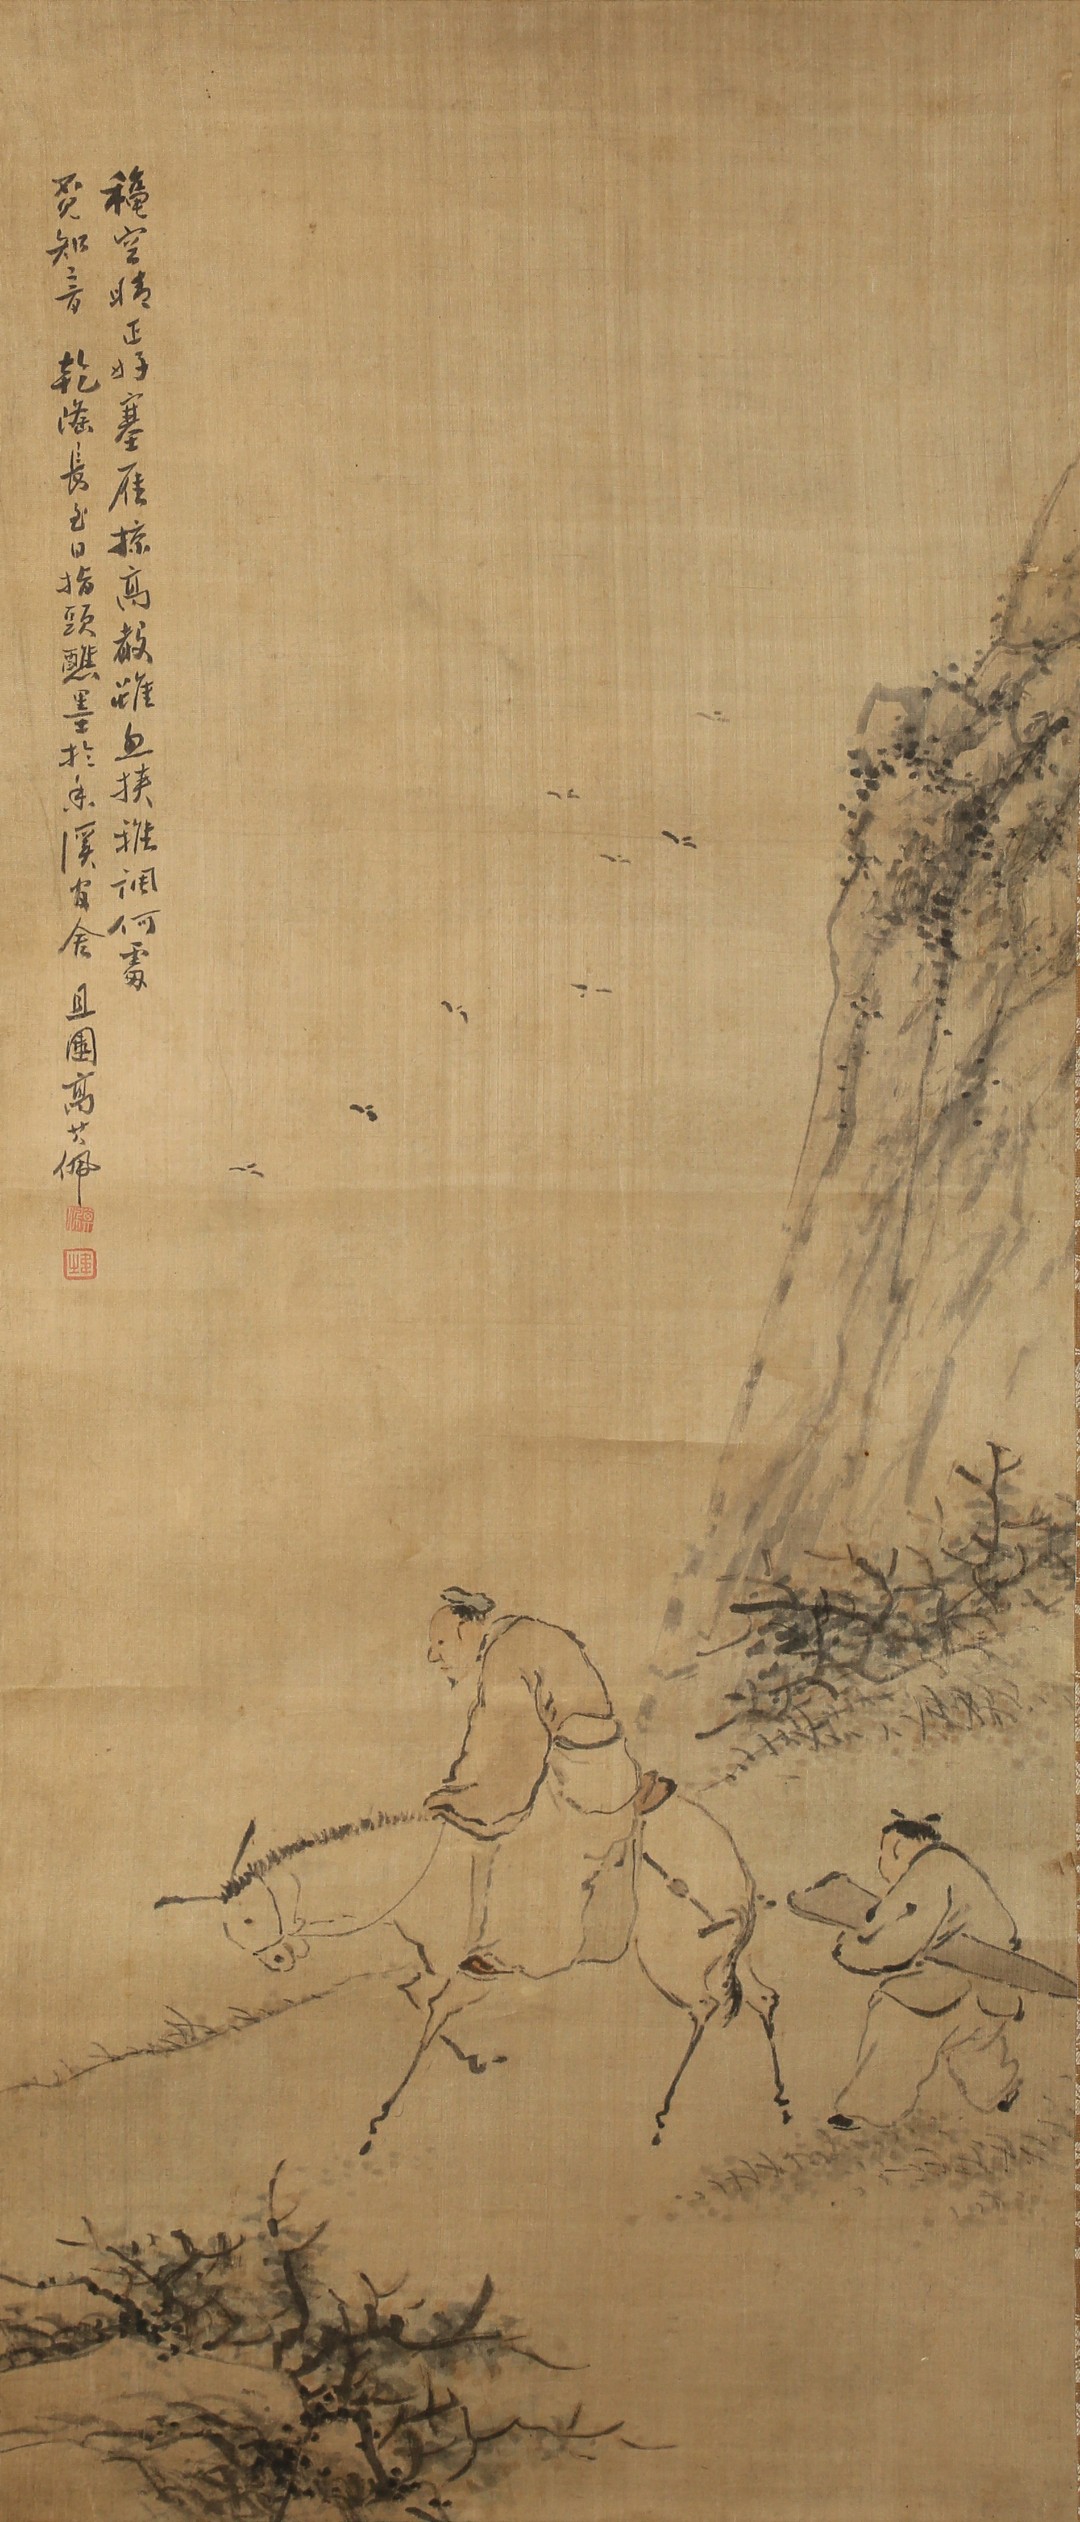 穐空晴正好塞雁掠高雖無挾雅調何處
覓知音 乾隆長至日指頭蘸墨於香溪官舍 且園高其佩